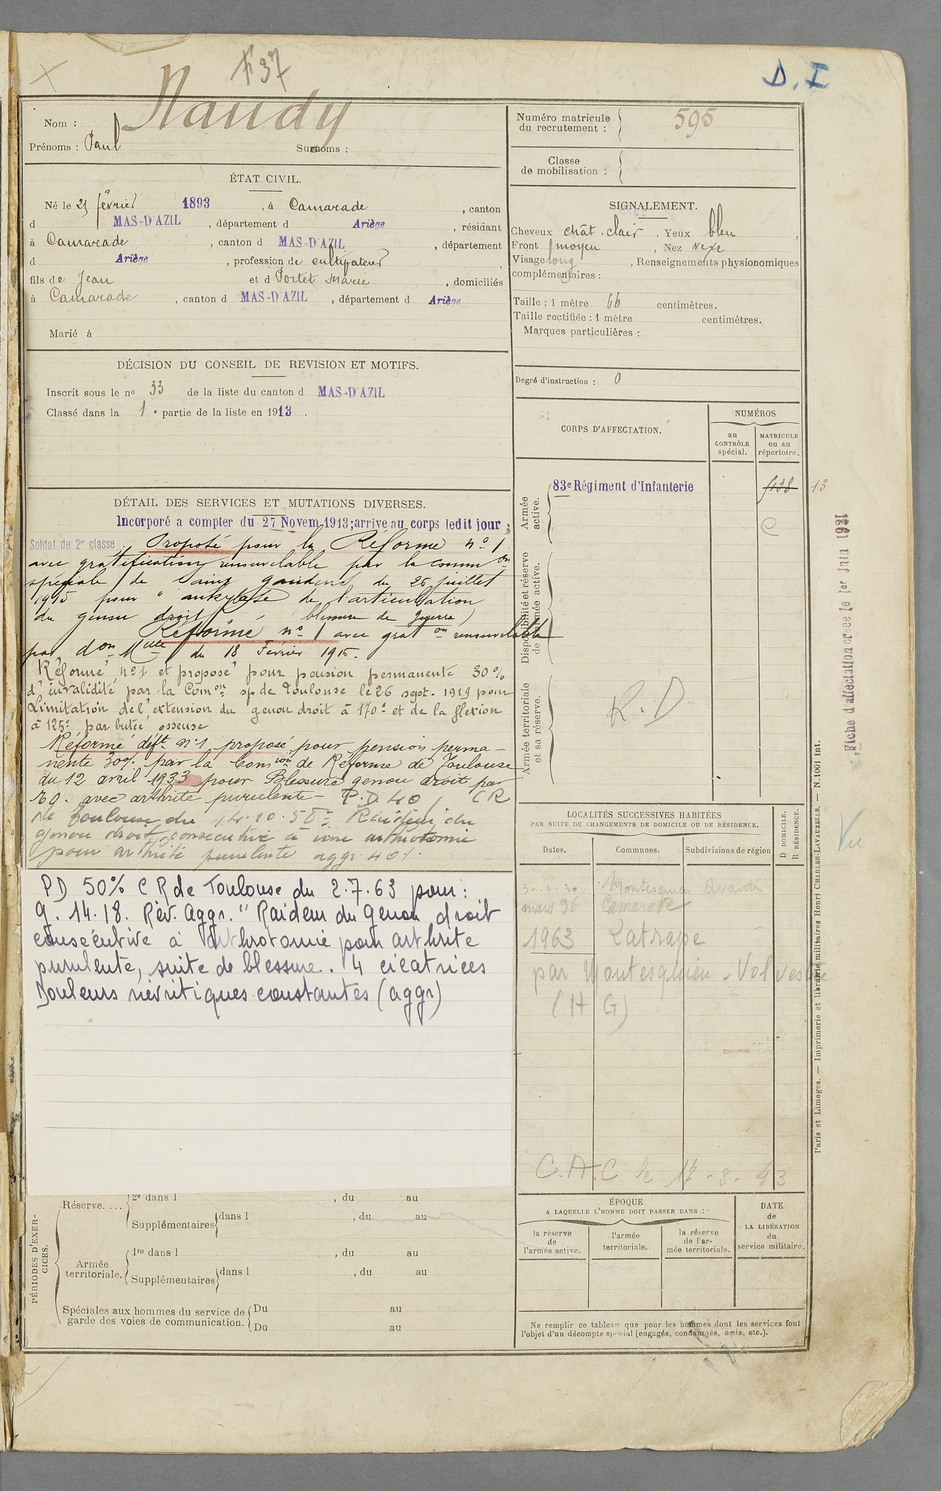 F37
D. I
Nom : Naudy
Prénoms : Paul Surnoms :
Numéro matricule du recrutement : 595
Classe de mobilisation :
ÉTAT CIVIL.
Né le 21 février 1893, à Camarade, canton
d MAS-D'AZIL, département d Ariège, résidant
à Camarade, canton d MAS-D'AZIL, département
d Ariège, profession de cultivateur
fils de Jean et d Portet Marie, domiciliés
à Camarade, canton d MAS-D'AZIL, département d Ariège
Marié à
SIGNALEMENT.
Cheveux chât. clair, Yeux bleu
Front moyen, Nez vexe
Visage long, Renseignements physionomiques
complémentaires :
Taille : 1 mètre 66 centimètres.
Taille rectifiée : 1 mètre centimètres.
Marques particulières :
Degré d'instruction : 0
DÉCISION DU CONSEIL DE REVISION ET MOTIFS.
Inscrit sous le nº 33 de la liste du canton d MAS-D'AZIL
Classé dans la 1e partie de la liste en 1913.
CORPS D'AFFECTATION.
NUMÉROS
au CONTRÔLE spécial.
MATRICULE ou au répertoire.
Armée active.
83e Régiment d'Infanterie
13
C
Disponibilité et réserve de l'armée active.
Armée territoriale et sa réserve.
R.D
DÉTAIL DES SERVICES ET MUTATIONS DIVERSES.
Incorporé a compter du 27 Novem. 1913; arrive au corps ledit jour ;
Soldat de 2e classe. Proposé pour la Réforme nº 1
avec gratification renouvelable par la comm on
spéciale de Saint gaudens du 26 juillet
1915 pour " ankylose de l'articulation
du genou droit (blessure de guerre)
Réformé nº 1 avec grat on renouvelable
par don Mlle du 18 Février 1915.
Réformé nº1 et proposé pour pension permanente 30%
d'invalidité par la Comon sp. de Toulouse le 26 sept. 1919 pour
Limitation de l'extension du genou droit à 170º et de la flexion
à 125º par butée osseuse
Réformé déft. nº 1, proposé pour pension perma-
nente 30% par la Comion de Réforme de Toulouse
du 12 avril 1933 pour Blessure genou droit par
avec arthrite purulente - P.D. 40 CR
de Toulouse du 14.10.58 : Raideur du
genou droit consécutive à une arthrotomie
pour arthrite purulente aggr. 40%
PD 50% CR de Toulouse du 2.7.63 pour :
G. 14.18. Rév. Aggr. " Raideur du genou droit
consécutive à arthrotomie pour arthrite
purulente, suite de blessure. 4 cicatrices
Douleurs névritiques constantes (aggr)
LOCALITÉS SUCCESSIVES HABITÉES
PAR SUITE DE CHANGEMENTS DE DOMICILE OU DE RÉSIDENCE.
Dates. Communes. Subdivisions de région
D DOMICILE. R RÉSIDENCE.
mars 36 Camarade
1963 Latrape
par Montesquieu-Volvestre
(H G)
C.A.C le 17-3-43
PÉRIODES D'EXERCICES.
Réserve....
2e dans l , du au
Supplémentaires dans l , du au
Armée territoriale.
1re dans l , du au
Supplémentaires dans l , du au
Spéciales aux hommes du service de garde des voies de communication.
Du au
Du au
ÉPOQUE
A LAQUELLE L'HOMME DOIT PASSER DANS :
la réserve de l'armée active.
l'armée territoriale.
la réserve de l'armée territoriale.
DATE de LA LIBÉRATION du service militaire.
Ne remplir ce tableau que pour les hommes dont les services font
l'objet d'un décompte spécial (engagés, condamnés, omis, etc.).
Paris et Limoges. — Imprimerie et librairie militaires Henri CHARLES-LAVAUZELLE. — N. 1001 int.
Fiche d'affectation créée le 1er Juin 1921
Vu